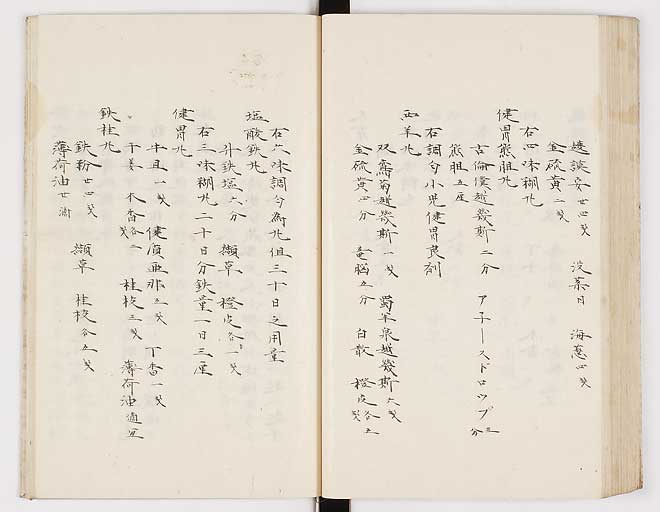 達謨安廿四戔 没薬日 海葱四戔
金硫黄一戔
右四味糊丸
健胃熊胆丸
古倫僕越幾斯二分 アネースドロップ三分
熊胆五厘
右調匀小児健胃良剤
西羊丸
双鸞菊越幾斯一戔 蜀羊泉越幾斯六戔
金硫黄四分 竜脳五分 白散 橙皮各五戔
右六味調匀為丸但三十日之用量
塩酸鉄丸
升鉄塩六分 纈草 橙皮各一戔
右三味糊丸二十日分鉄量一日三厘
健胃丸
牛胆一戔 健質亜那五戔 丁香一戔
干姜 木香各一 桂枝三戔 薄荷油適宜
鉄桂丸
鉄粉廿四戔 纈草 桂枝各五戔
薄荷油廿滴